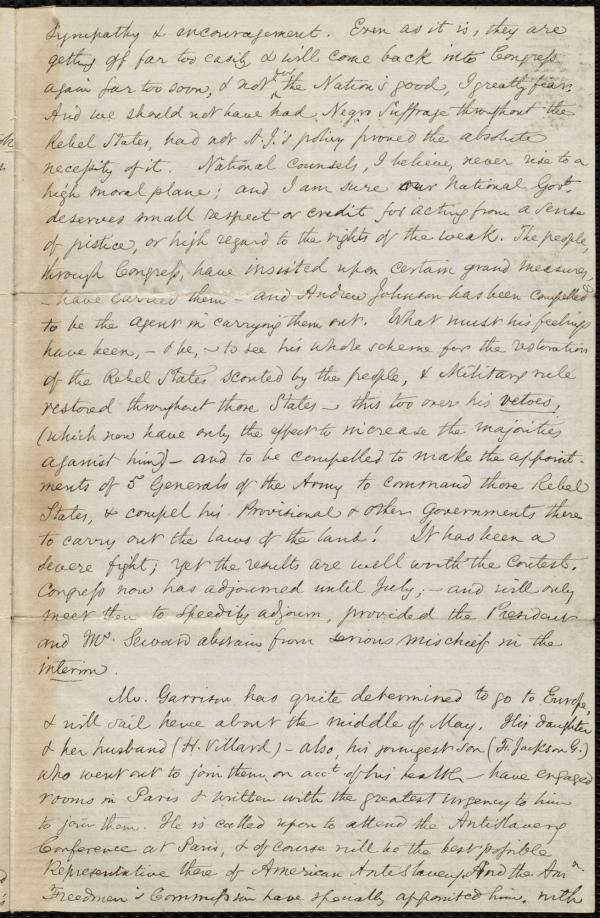 Sympathy & encouragement. Even as it is, they are
getting off far too easily & will come back into Congress
again far too soon, & not for the Nation's good, I greatly fear.
And we should not have had Negro Suffrage throughout the
Rebel States, had not A. J.'s policy proved the absolute
necessity of it. National counsels, I believe, never rise to a
high moral plane; and I am sure our National Govt.
deserves small respect or credit for acting from a sense
of justice, or high regard to the rights of the weak. The people,
through Congress, have insisted upon certain grand measures,
- have carried them - and Andrew Johnson has been compelled
to be the agent in carrying them out. What must his feelings
have been, - & be, - to see his whole scheme for the restoration
of the Rebel States scouted by the people, & Military rule
restored throughout those States - this too over his vetoes,
(which now have only the effect to increase the majorities
against him,) - and to be compelled to make the appoint-
ments of 5 Generals of the Army to command those Rebel
States, & compel his Provisional & other Governments there
to carry out the laws of the land! It has been a
severe fight; yet the results are well worth the contest.
Congress now has adjourned until July; - and will only
meet then to speedily adjourn, provided the President
and Mr. Seward abstain from serious mischief in the
interim.
Mr. Garrison has quite determined to go to Europe,
& will sail hence about the middle of May. His daughter
& her husband (H. Villard) - also, his youngest son (F. Jackson G.)
who went out to join them, on acct. of his health - have engaged
rooms in Paris & written with the greatest urgency to him
to join them. He is called upon to attend the Antislavery
Conference at Paris, & of course will be the best possible
Representative there of American Antislavery. And the Amn.
Freedmen's Commission have specially appointed him, with